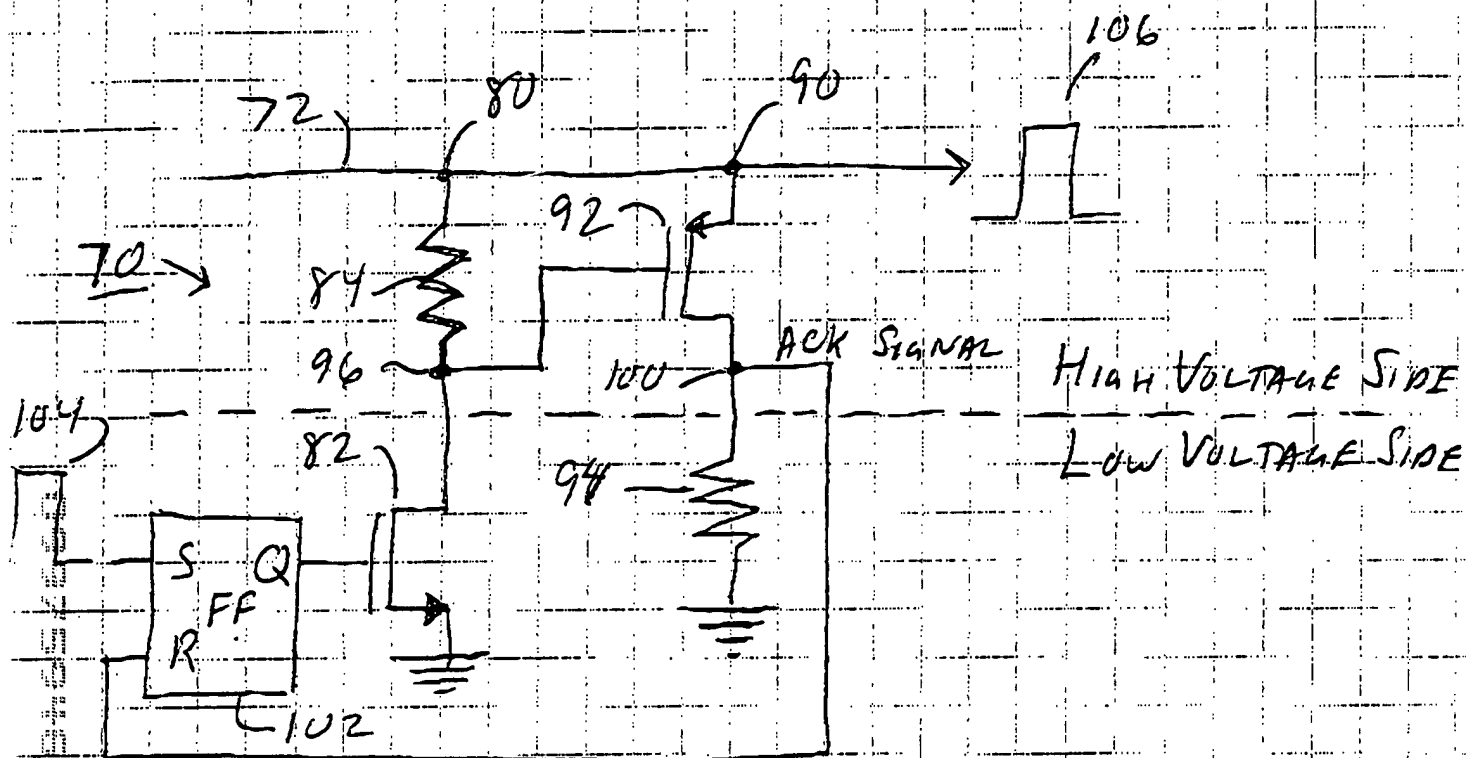 106
80
90
72
92
70
84
96
100
ACK SIGNAL
HIGH VOLTAGE SIDE
104
LOW VOLTAGE SIDE
82
94
S Q
FF
R
102